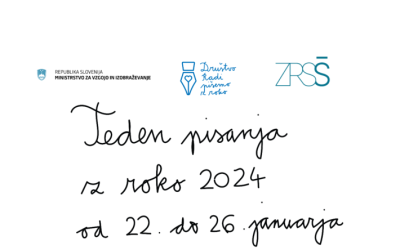 REPUBLIKA SLOVENIJA
MINISTRSTVO ZA VZGOJO IN IZOBRAŽEVANJE
Društvo
Radi
pišemo
z roko
ZRSŠ
Teden pisanja
z roko 2024
od 22. do 26. januarja